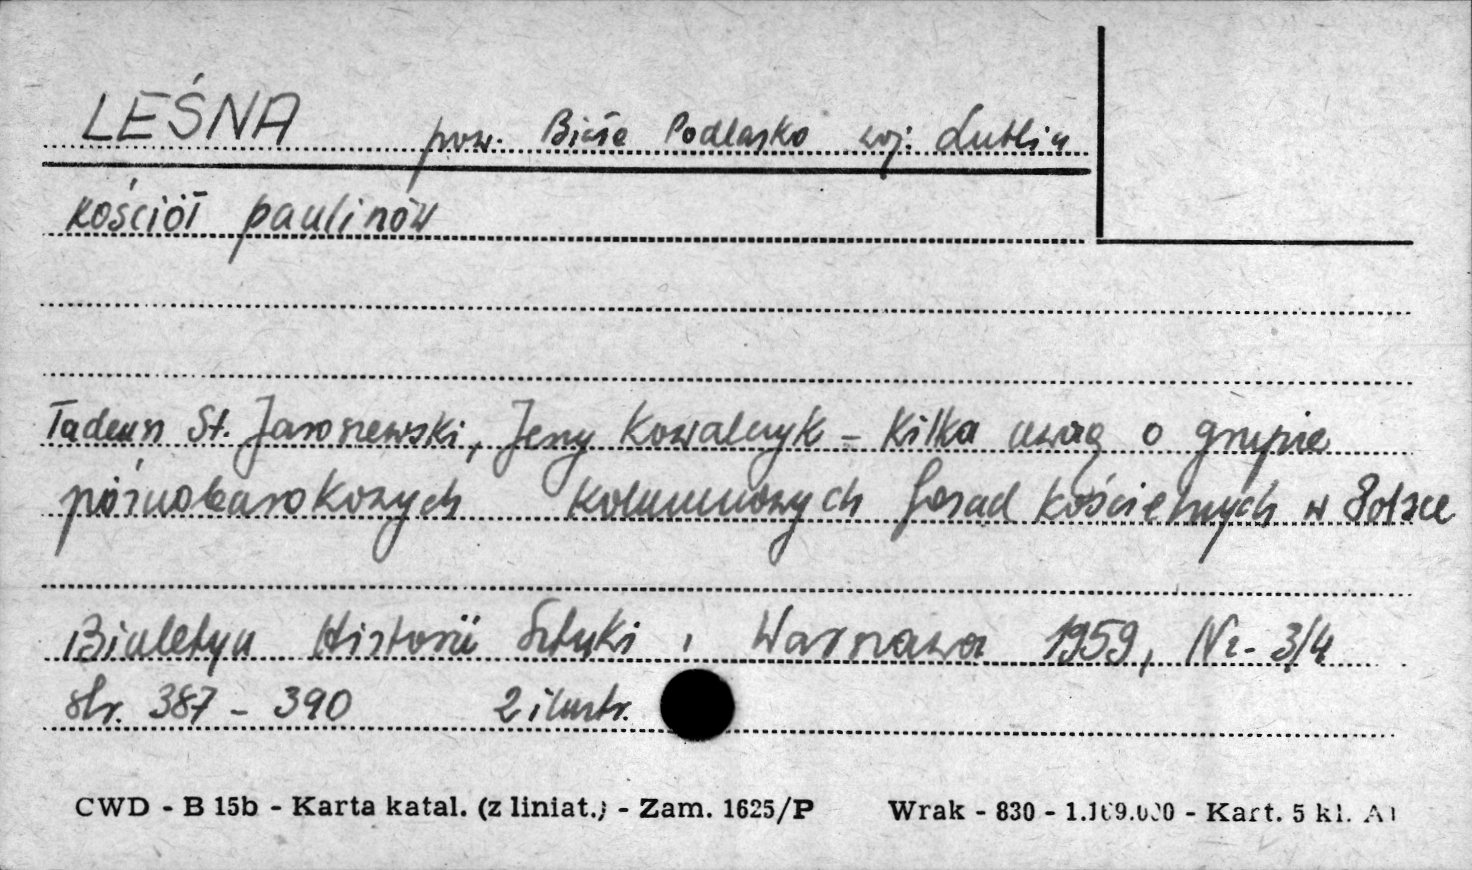 LEŚNA pow. Biała Podlaska woj. Lublin
kościół paulinów
Tadeusz St. Jaroszewski, Jerzy Kowalczyk - Kilka uwag o grupie
późnobarokowych kolumnowych fasad kościelnych w Polsce
Biuletyn Historii Sztuki, Warszawa 1959, Nr. 3/4
str. 387 - 390 2 ilustr.
CWD - B 15b - Karta katal. (z liniat.) - Zam. 1625/P Wrak - 830 - 1.169.000 - Kart. 5 kl. A1